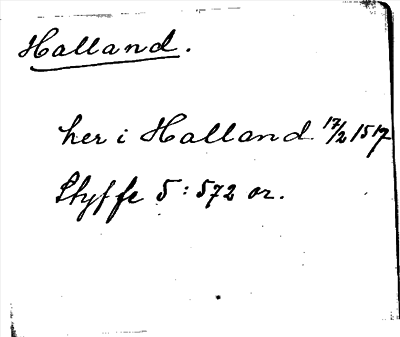 Halland.
her i Halland 17/2 1517
Styffe 5: 572 or.